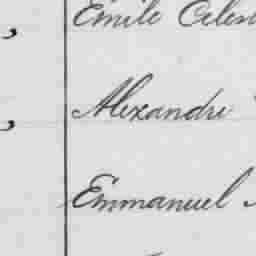 Emile
Alexandre
Emmanuel